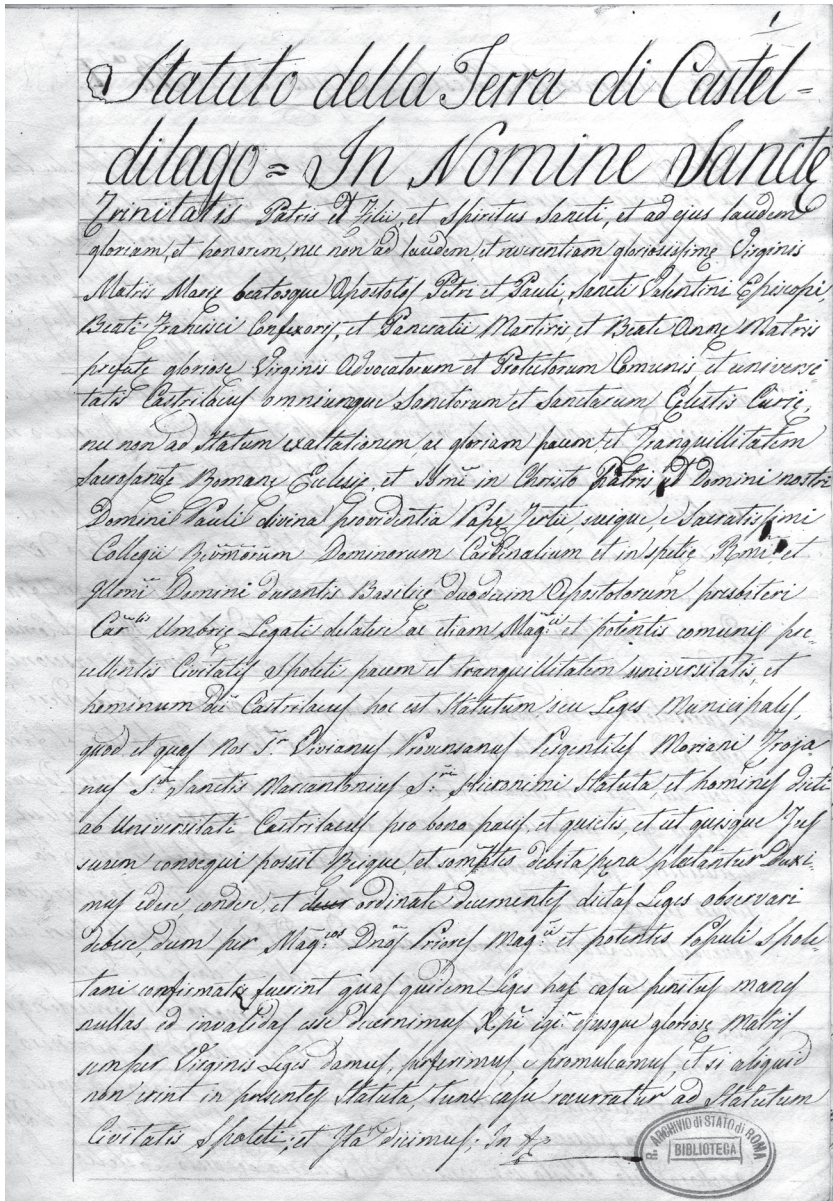 1
Statuto della Terra di Castel-
dilago = In Nomine Sanctę
Trinitatis Patris et Filii, et Spiritus Sancti, et ad ejus laudem
gloriam, et honorem, nec non ad laudem, et reverentiam gloriosissimę Virginis
Matris Marię beatosque Apostolos Petri et Pauli, Sancti Valentini Episcopi,
Beati Francisci Confexoris, et Pancratii Martiris, et Beatę Annę Matris
prefatę gloriosę Virginis Advocatorum et Protectorum Comunis et universi-
tatis Castrilacus omniumque Sanctorum et Sanctarum Celestis Curię,
nec non ad Statum exaltationem, ac gloriam pacem, et Tranquillitatem
Sacrosanctę Romanę Ecclesię, et in Christo Patris et Domini nostri
Domini Pauli divina providentia Papę Tertii suique, e Sacratissimi
Collegii Rev̄morum Dominorum Cardinalium et in spetię Rm̄i et
Illm̄i Domini durantis Basilicę duodecim Apostolorum presbiteri
Car.lis Umbrię Legati delatere ac etiam Mag.ci et potentis comunis pre-
cellentis Civitatis Spoleti pacem et tranquillitatem universitatis, et
hominum Castrilacus hoc est Statutum seu Leges Municipales,
quod et quas Nos Vivianus Provensanus Pergentiles Mariani Troja-
nus Sanctis Marcantonius Hieronimi Statuta, et homines dicti
ab Universitate Castrilacus pro bono pacis, et quietis, et ut quisque Jus
suum consequi possit debita pena plectantur Duxi-
mus edere, condere, et ordinate decernentes dictas Leges observari
debere, dum per Mag.cos Dnos Priores Mag.ci et potentis Populi Spole-
tani confirmatę fuerint quas quidem Leges hac casu penitus
nullas ed invalidas esse decernimus Xp̄i ejusque gloriosę Matris
semper Virginis Leges damus, proferimus, e promulcamus, et si aliquid
non erint in presentes Statuta, tunc casu recurratur ad Statutum
Civitatis Spoleti; et Ita dicimus; In
R. ARCHIVIO di STATO di ROMA
BIBLIOTECA